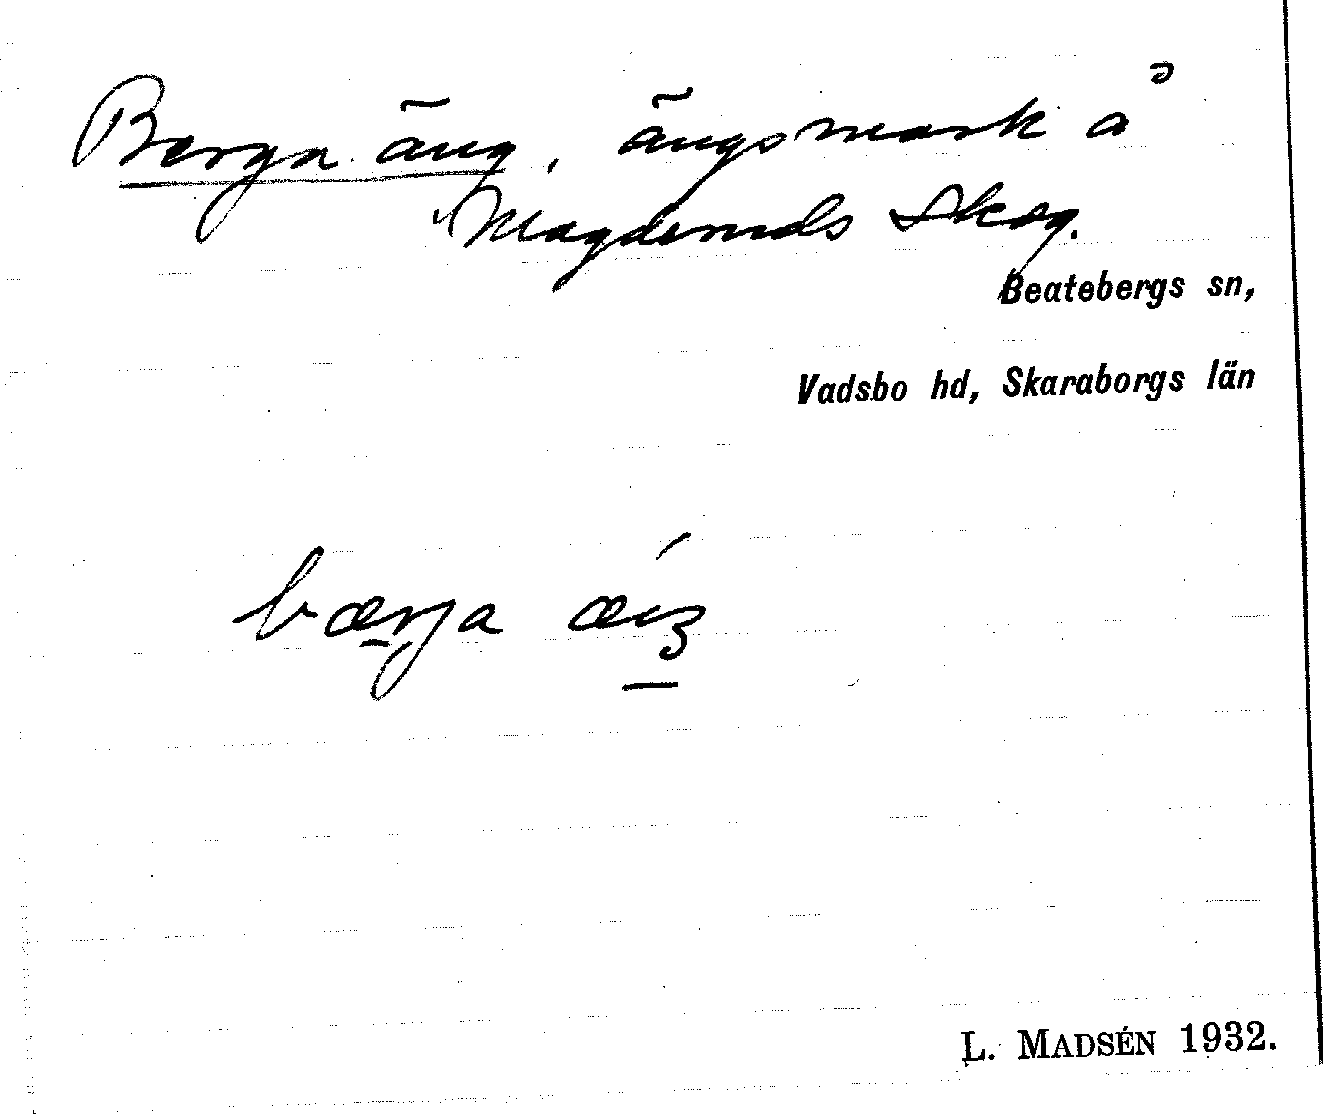 Berga äng, ängsmark å
Magdemås Skog.
Beatebergs sn,
Vadsbo hd, Skaraborgs län
bærja
L. MADSÉN 1932.